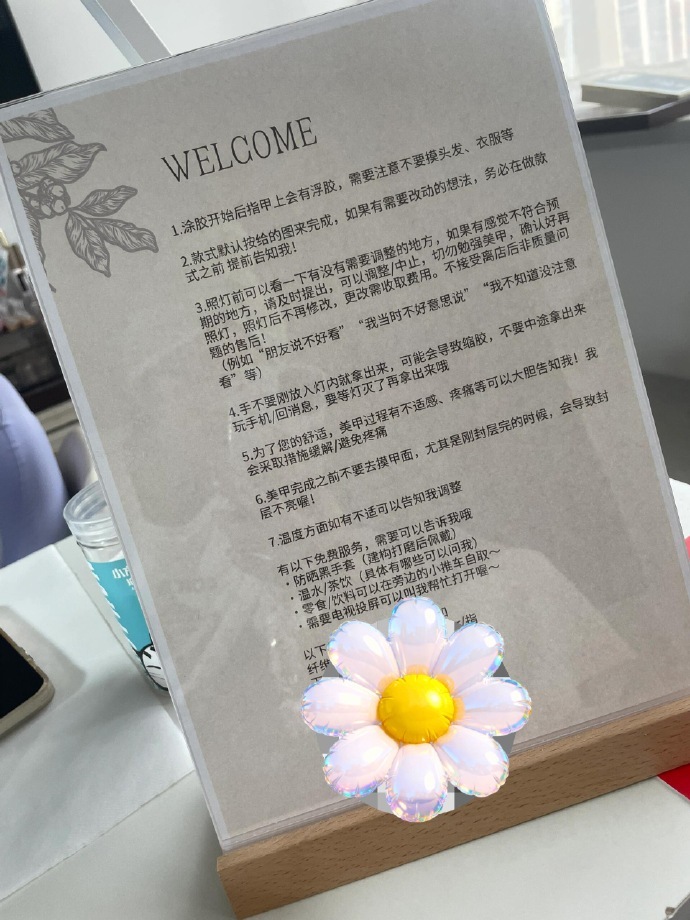 WELCOME
1.涂胶开始后指甲上会有浮胶，需要注意不要摸头发、衣服等
2.款式默认按给的图来完成，如果有需要改动的想法，务必在做款
式之前 提前告知我！
3.照灯前可以看一下有没有需要调整的地方，如果有感觉不符合预
期的地方，请及时提出，可以调整/中止，切勿勉强美甲，确认好再
照灯，照灯后不再修改，更改需收取费用。不接受离店后非质量问
题的售后！
（例如“朋友说不好看” “我当时不好意思说” “我不知道没注意
看”等）
4.手不要刚放入灯内就拿出来，可能会导致缩胶，不要中途拿出来
玩手机/回消息，要等灯灭了再拿出来哦
5.为了您的舒适，美甲过程有不适感、疼痛等可以大胆告知我！我
会采取措施缓解/避免疼痛
6.美甲完成之前不要去摸甲面，尤其是刚封层完的时候，会导致封
层不亮喔！
7.温度方面如有不适可以告知我调整
有以下免费服务，需要可以告诉我哦
·防晒黑手套（建构打磨后佩戴）
·温水/茶饮（具体有哪些可以问我）
·零食/饮料可以在旁边的小推车自取～
·需要电视投屏可以叫我帮忙打开喔～
以下
纤维
/指